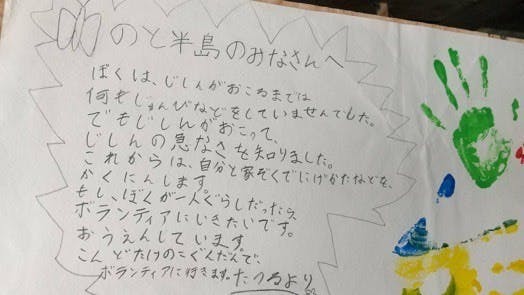 のと半島のみなさんへ
ぼくは、じしんがおこるまでは
何もじゅんびなどをしていませんでした。
でもじしんがおこって、
じしんの急なさを知りました。
これからは、自分と家ぞくでにげかたなどを、
かくにんします。
もし、ぼくが一人ぐらしだったら
ボランティアにいきたいです。
おうえんしています。
こんどたけのこぐんだんで、
ボランティアに行きます。たつるより